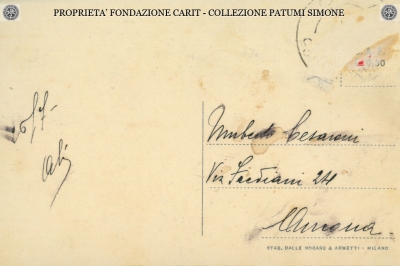 PROPRIETA' FONDAZIONE CARIT - COLLEZIONE PATUMI SIMONE
Umberto Cesaroni
Via Frediani 24
Ancona
STAB. DALLE NOGARE & ARMETTI - MILANO